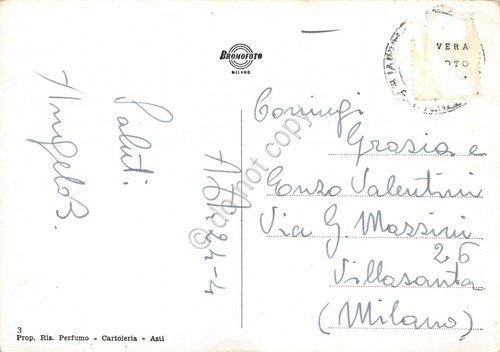 BROMOFOTO
MILANO
VERA
FOTO
Saluti
Angelo B.
24-4
Coniugi
Grazia e
Enzo Valentini
Via G. Massini
26
Villasanta
(Milano)
do not copy
3
Prop. Ris. Perfumo - Cartoleria - Asti